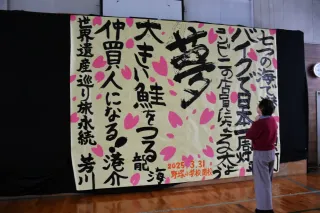 七つの海で
バイクで日本一周
コンビニの店員になる
夢
大きい鮭をつる 龍海
仲買人になる。港介
世界遺産巡り旅永続 芳川
2025.3.31
野塚小学校閉校